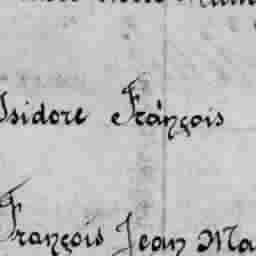 Isidore François
François Jean Ma